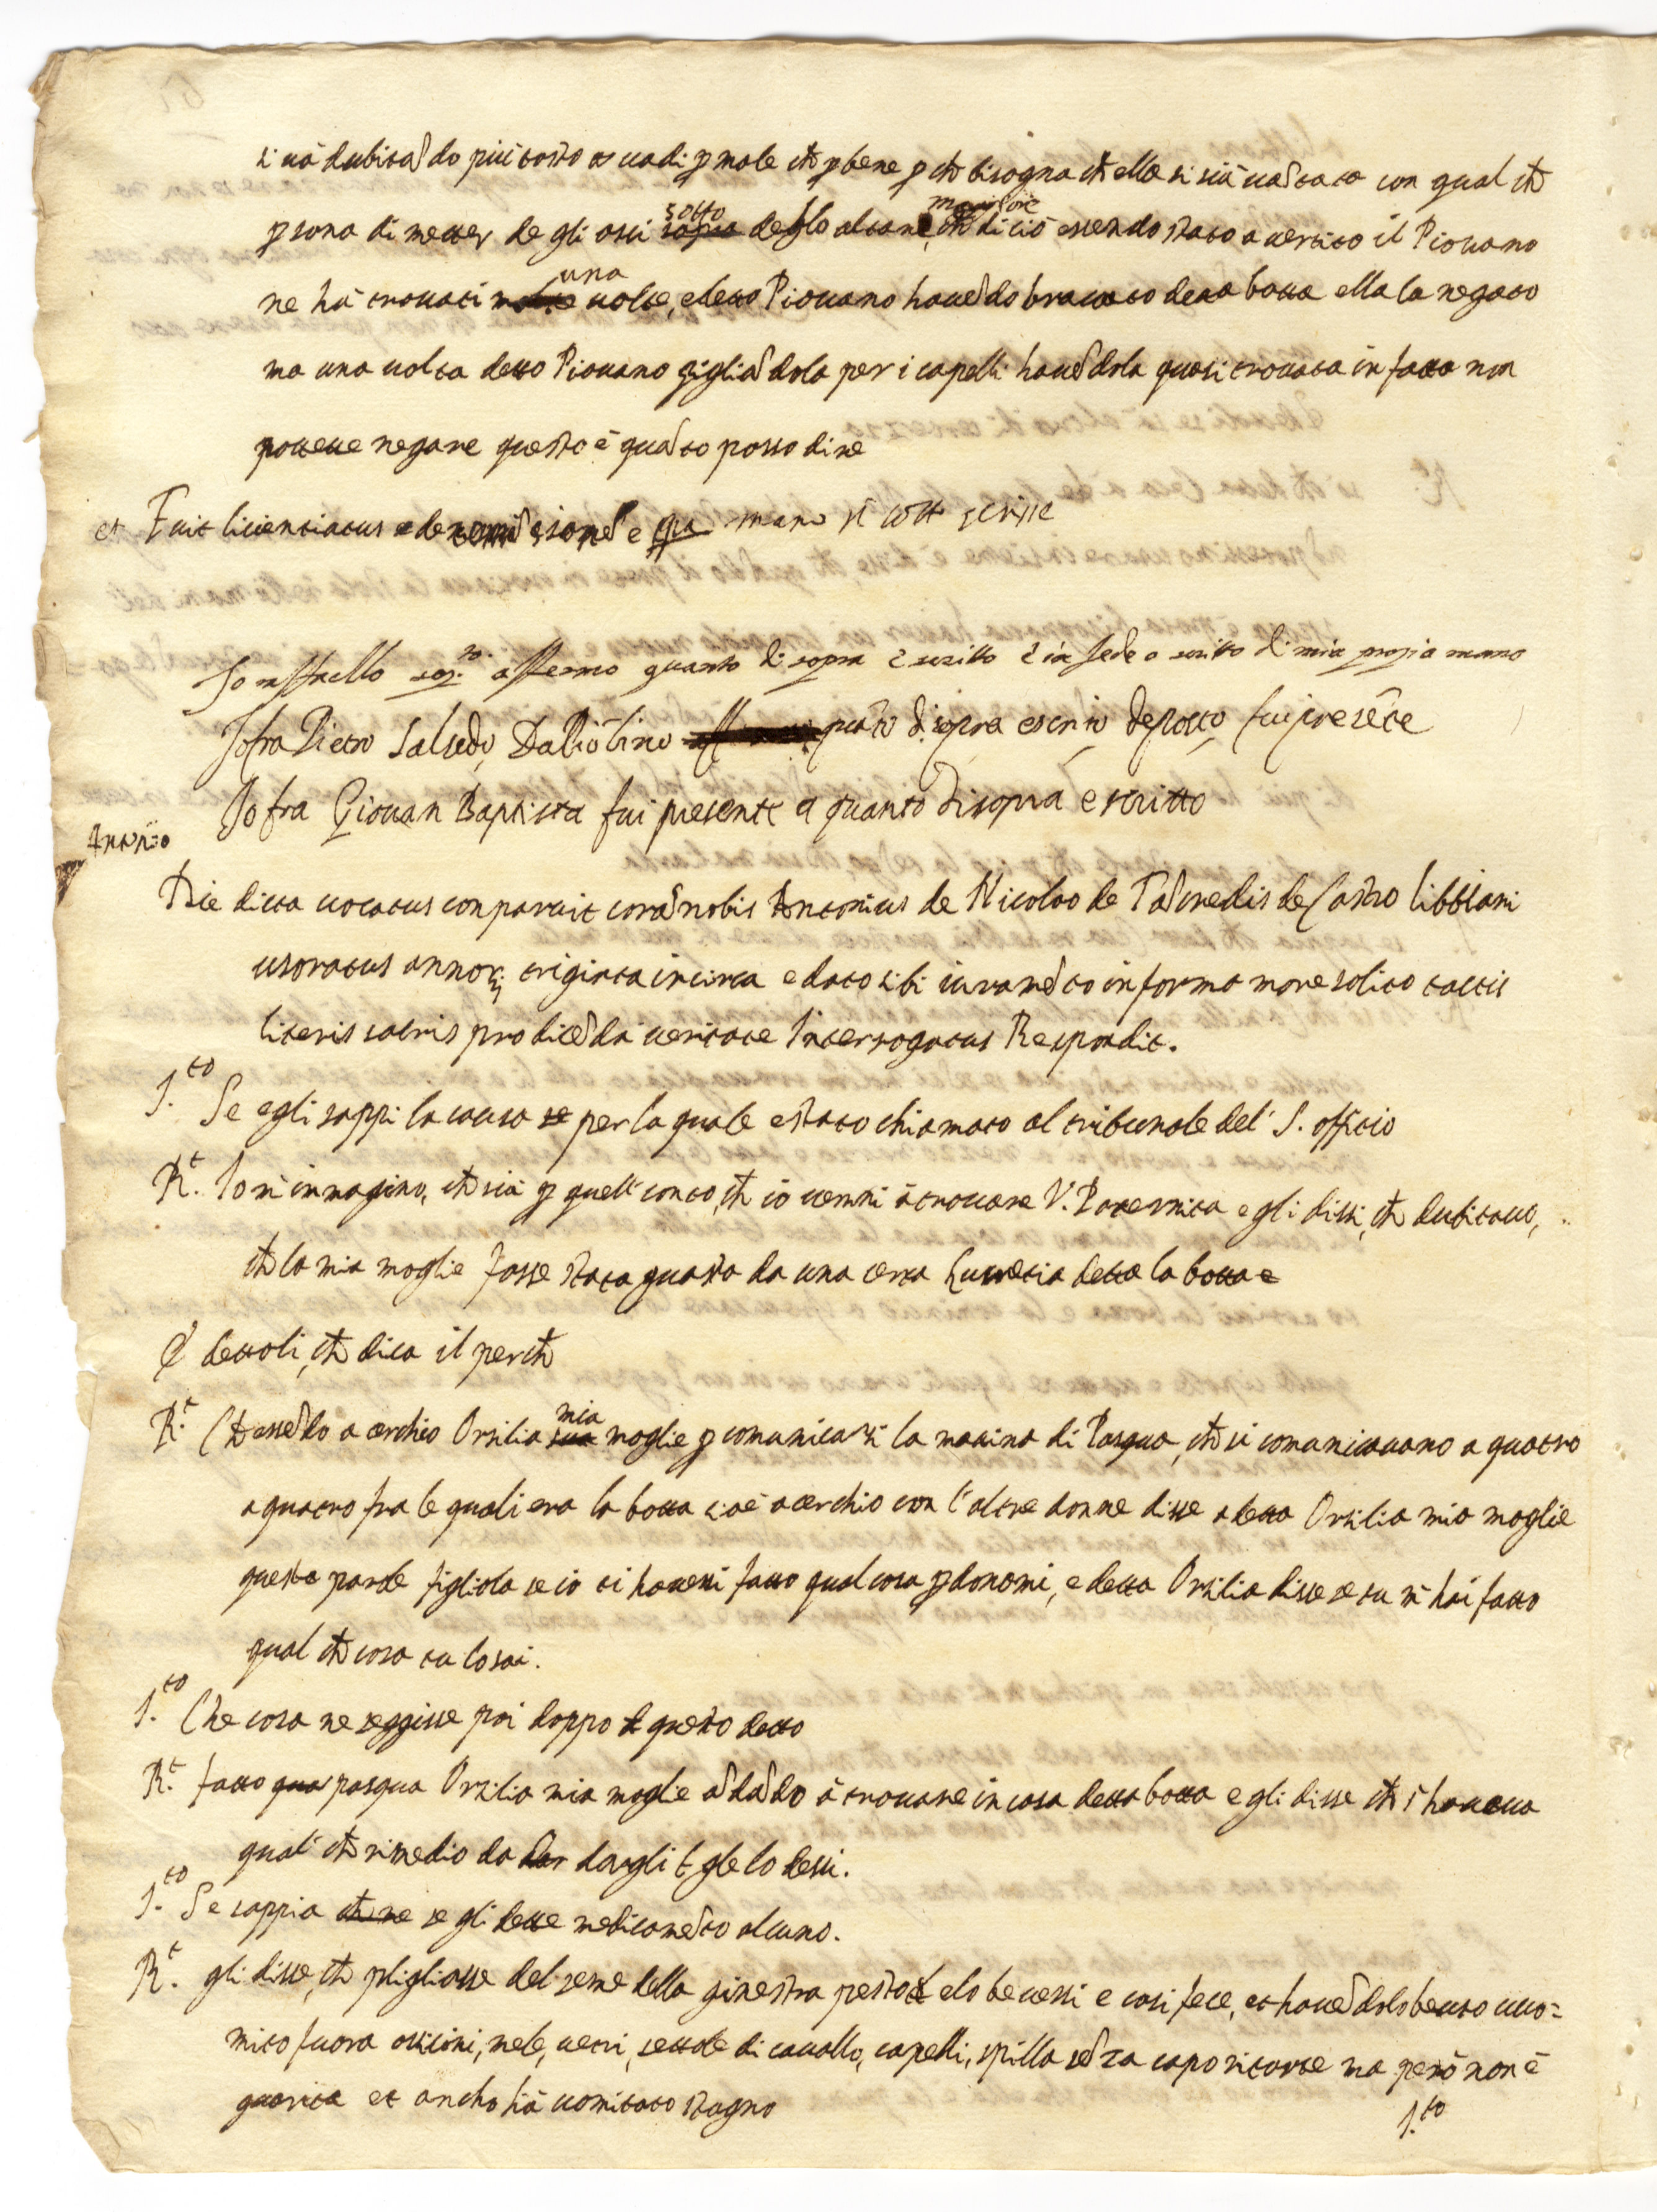 si uà dubitando più tosto es uadi p male ch p bene p ch bisogna ch ella si sia uantata con qual ch
psona di metter de gli ossi sopra sotto dello altare, ch di ciò maggiore essendo stato auertito il Piouano
ne hà trouati molte una uolte, e detto Piouano hauendo brauato detta botta ella la negato
ma una uolta detto Piouano pigliandola per i capelli hauendola quasi trouata in fatto non
potette negare questo è quanto posso dire
et Fuit licentiatus e de mano si sott scrisse
Io raffaello affermo quanto di sopra è scritto e in fede o scritto di mia propia mano
Io fra Pietro Salsedo, quāto di sopra escrito deposto, fui presēte
Io fra Giouan Baptista fui presente a quanto di sopra e scritto
Antonio
Die dicta uocatus conparuit coram nobis Antonius de Nicolao de Tancredis de Castro libbiani
usoratus annor; triginta incirca e dato sibi iuramento in forma more solito tactis
literis sacris pro dicenda ueritate Interrogatus Respondit.
I.to Se egli sappi la causa se per la quale e stato chiamato al tribunale del' S. officio
R.t Io m' inmagino, ch sia p quell conto, ch io uenni à trouare V. Paternita e gli dissi, ch dubitauo,
ch la mia moglie fosse stata guasta da una certa Lucretia detta la botta e
E dettoli, ch dica il perch
R.t Ch essendo a cerchio Orsilia sua mia moglie p comunicarsi la matina di Pasqua, ch si comunicauano a quatro
a quatro fra le quali era la botta cioè a cerchio con l'altre donne disse a detta Orsilia mia moglie
queste parole figliola se io ti hauessi fatto qual cosa pdonami, e detta Orsilia disse se tu m' hai fatto
qual ch cosa tu lo sai.
I.to Che cosa ne seggisse poi doppo d questo detto
R.t fatto qua pasqua Orsilia mia moglie andando à trouare in casa detta botta e gli disse ch s' haueua
qual ch rimedio da dar dargli E gle lo dessi.
I.to Se sappia ch ne se gli dette medicamento alcuno.
R.t gli disse, ch pligliasse del seme della ginestra pesto e lo beuessi e così fece, et hauendolo beuto uuo=
mito fuora ossicini, mele, uetri, settole di cauallo, capelli, spilla senza capo ritorte ma però non è
guarita et ancho hà uomitato stagno
I.to